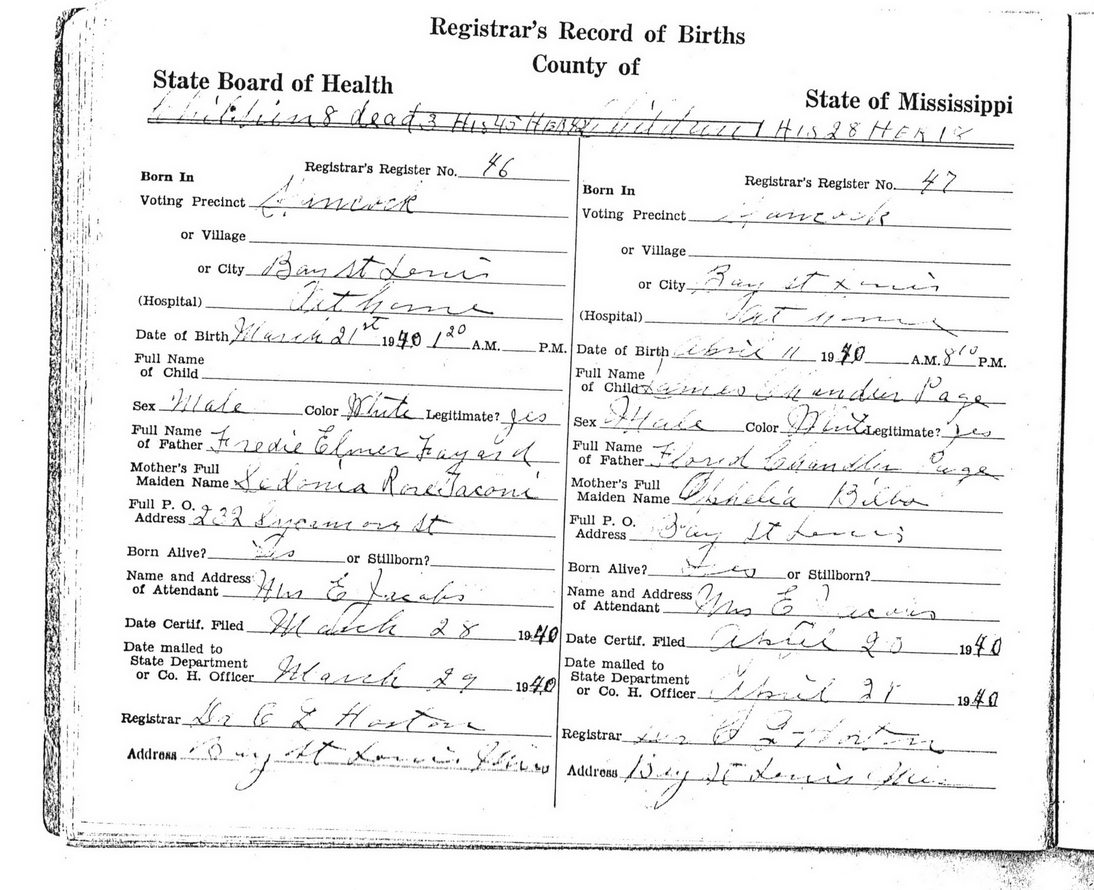 Registrar's Record of Births
County of
State Board of Health
State of Mississippi
Children 8 dead 3 His 45 Her 42
Children 1 His 28 Her 18
Registrar's Register No. 46
Born In
Voting Precinct Hancock
or Village
or City Bay St Louis
(Hospital) At home
Date of Birth March 21st 1940 1 20 A.M. P.M.
Full Name
of Child
Sex Male Color White Legitimate? yes
Full Name
of Father Fredie Elmer Fayard
Mother's Full
Maiden Name Sedonia Rose Taconi
Full P. O.
Address 232 Sycamore St
Born Alive? Yes or Stillborn?
Name and Address
of Attendant Mrs E Jacobs
Date Certif. Filed March 28 1940
Date mailed to
State Department
or Co. H. Officer March 29 1940
Registrar Dr C L Horton
Address Bay St Louis Miss
Registrar's Register No. 47
Born In
Voting Precinct Hancock
or Village
or City Bay St Louis
(Hospital) at home
Date of Birth April 11 1940 A.M. 8 10 P.M.
Full Name
of Child James Chandler Page
Sex Male Color White Legitimate? yes
Full Name
of Father Chandler Page
Mother's Full
Maiden Name Ophelia Bilbo
Full P. O.
Address Bay St Louis
Born Alive? Yes or Stillborn?
Name and Address
of Attendant Mrs E Jacobs
Date Certif. Filed April 20 1940
Date mailed to
State Department
or Co. H. Officer April 28 1940
Registrar Horton
Address Bay St Louis Miss